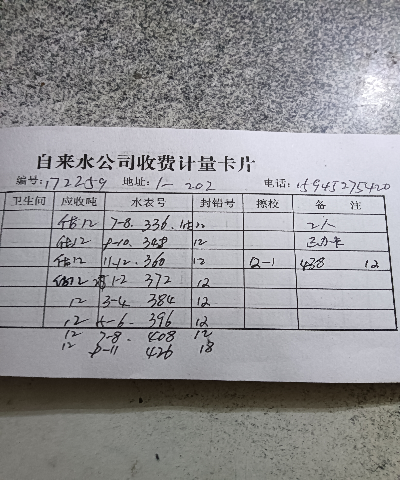 自来水公司收费计量卡片
编号: 172259 地址: 1-202 电话: 15945275420
卫生间 应收吨 水表号 封铅号 擦校 备 注
估12 7-8. 336. 12 2人
估12 9-10. 348 12 已办卡
估12 11-12. 360 12 12-1 438 12
12 1-2 372 12
12 3-4 384 12
12 5-6. 396 12
12 7-8. 408 12
12 9-11 426 18